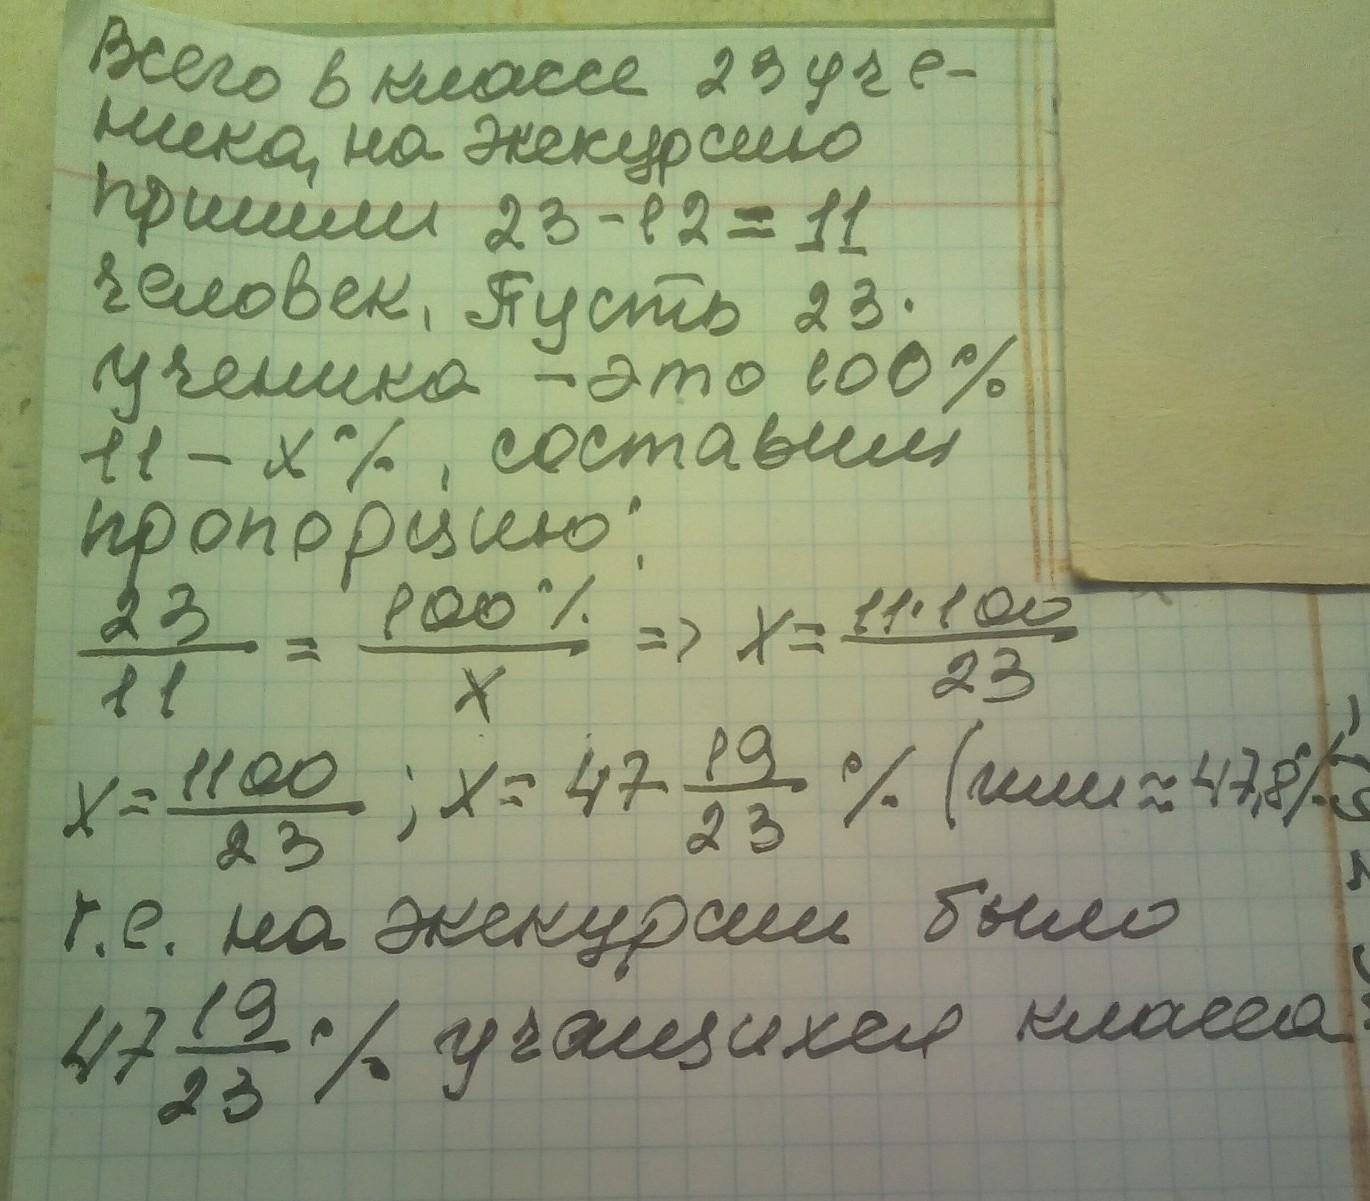 Всего в классе 23 уче-
ника, на экскурсию
пришли 23-12=11
человек. Пусть 23
ученика - это 100%
11 - x%, составим
пропорцию:
23/11 = 100%/x => x = 11·100/23
x = 1100/23 ; x = 47 19/23 % (или ≈ 47,8%
т.е. на экскурсии было
47 19/23 % учащихся класса